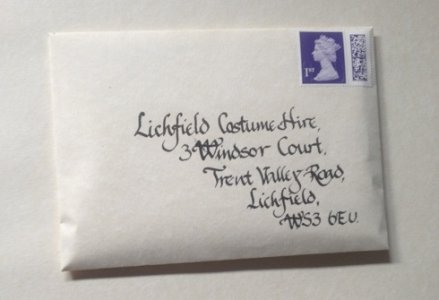 1ST
Lichfield Costume Hire,
3 Windsor Court,
Trent Valley Road,
Lichfield,
WS3 6EU.